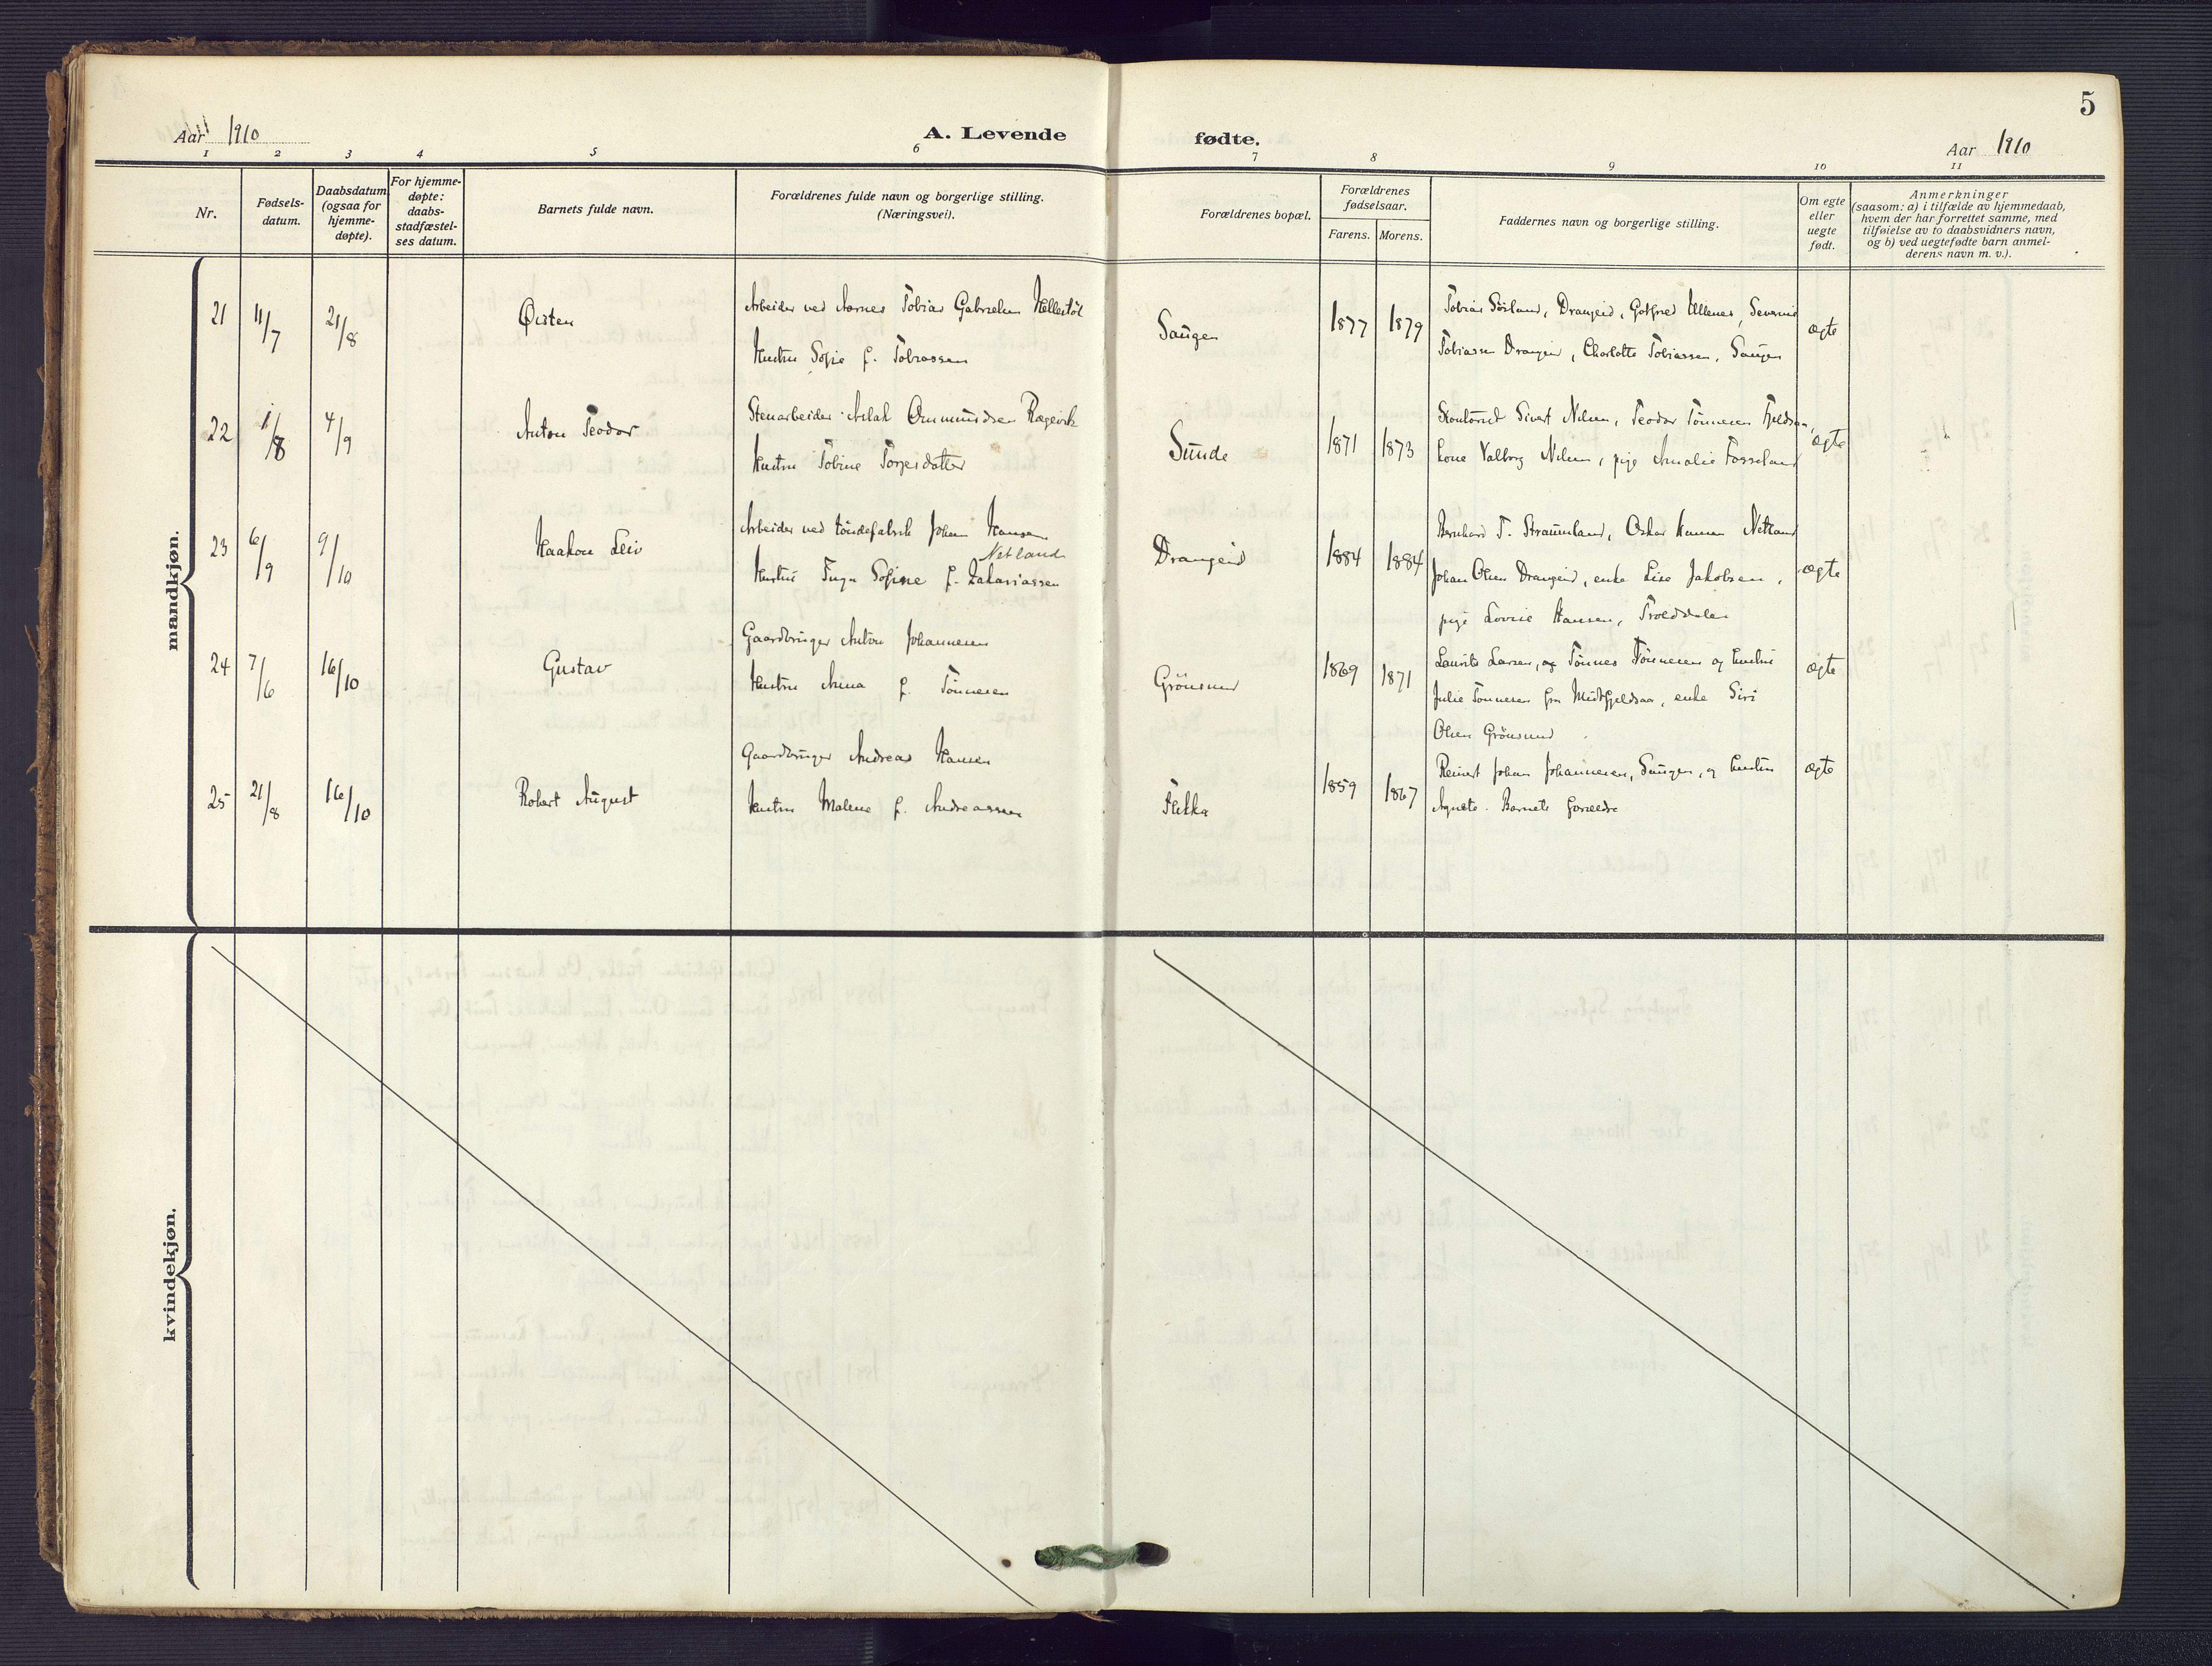 5
Aar 1910
A. Levende fødte.
Aar 1910
1 2 3 4 5 6 7 8 9 10 11
Nr.
Fødsels-
datum.
Daabsdatum
(ogsaa for
hjemme-
døpte).
For hjemme-
døpte:
daabs-
stadfæstel-
ses datum.
Barnets fulde navn.
Forældrenes fulde navn og borgerlige stilling.
(Næringsvei).
Forældrenes bopæl.
Forældrenes
fødselsaar.
Farens. Morens.
Faddernes navn og borgerlige stilling.
Om egte
eller
uegte
født.
Anmerkninger
(saasom: a) i tilfælde av hjemmedaab,
hvem der har forrettet samme, med
tilføielse av to daabsvidners navn,
og b) ved uegtefødte barn anmel-
derens navn m. v.).
mandkjøn.
21 11/7 21/8 Øisten
Arbeider ved Tobias Gabrielsen
Hustru Sofie f. Tobiassen
Saugen 1877 1879
Tobias Drangeid, Gotfred
Tobiassen Drangeid, Charlotte Tobiassen, Saugen
ægte
22 1/8 4/9 Anton Teodor
Stenarbeider Aslak Ommundsen Rægevik
Hustru Tobine Torjesdatter
Sunde 1871 1873
Sivert Nilsen, Teodor Tønnesen
Lone Valborg Nilsen, pige Amalie Fosseland
ægte
23 6/9 9/10 Haakon Leiv
Arbeider ved tøndefabrik Johan Hansen
Netland
Hustru Sofine f. Zakariassen
Drangeid 1884 1884
Bernhard T. Straumland, Oskar Hansen Netland
Johan Olsen Drangeid, enke Lise Jakobsen,
pige Lovise Hansen, Trolddalen
ægte
24 7/6 16/10 Gustav
Gaardbruger Anton Johannesen
Hustru Anna f. Tønnesen
Grønsund 1869 1871
Laurits Larsen, og Tønnes Tønnesen og hustru
Julie Tønnesen fra Midtfjeldsaa, enke Siri
Olsen Grønsund
ægte
25 21/8 16/10 Robert August
Gaardbruger Andreas Hansen
Hustru Malene f. Andreassen
Flikka 1859 1867
Reinert Johan Johannesen, Saugen, og hustru
Agnete. Barnets forældre
ægte
kvindekjøn.